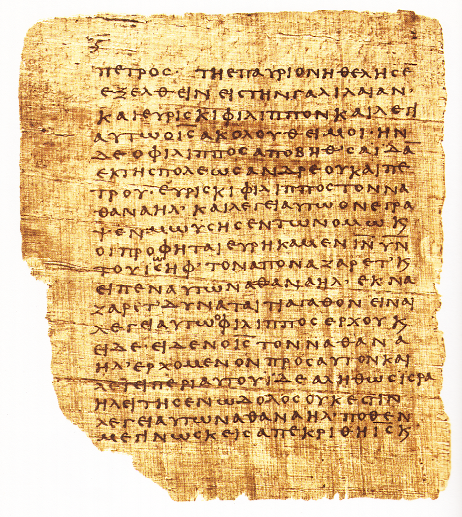 ϛ
ΠΕΤΡΟΣ· ΤΗ ΕΠΑΥΡΙΟΝ ΗΘΕΛΗΣΕ
ΕΞΕΛΘΕΙΝ ΕΙΣ ΤΗΝ ΓΑΛΙΛΑΙΑΝ·
ΚΑΙ ΕΥΡΙΣΚΙ ΦΙΛΙΠΠΟΝ ΚΑΙ ΛΕΓΙ
ΑΥΤΩ Ο ΙΣ ΑΚΟΛΟΥΘΕΙ ΜΟΙ· ΗΝ
ΔΕ Ο ΦΙΛΙΠΠΟΣ ΑΠΟ ΒΗΘΣΑΙΔΑ
ΕΚ ΤΗΣ ΠΟΛΕΩΣ ΑΝΔΡΕΟΥ ΚΑΙ ΠΕ
ΤΡΟΥ· ΕΥΡΙΣΚΙ ΦΙΛΙΠΠΟΣ ΤΟΝ ΝΑ
ΘΑΝΑΗΛ· ΚΑΙ ΛΕΓΕΙ ΑΥΤΩ ΟΝ ΕΓΡΑ
ΨΕΝ ΜΩΥΣΗΣ ΕΝ ΤΩ ΝΟΜΩ Κ
ΟΙ ΠΡΟΦΗΤΑΙ ΕΥΡΗΚΑΜΕΝ ΙΝ ΥΝ
ΤΟΥ ΙΩΣΗΦ· ΤΟΝ ΑΠΟ ΝΑΖΑΡΕΤ· Κ
ΕΙΠΕΝ ΑΥΤΩ ΝΑΘΑΝΑΗΛ· ΕΚ ΝΑ
ΖΑΡΕΤ ΔΥΝΑΤΑΙ ΤΙ ΑΓΑΘΟΝ ΕΙΝΑΙ
ΛΕΓΕΙ ΑΥΤΩ Ο ΦΙΛΙΠΠΟΣ ΕΡΧΟΥ Κ
ΕΙΔΕ· ΕΙΔΕΝ Ο ΙΣ ΤΟΝ ΝΑΘΑΝΑ
ΗΛ· ΕΡΧΟΜΕΝΟΝ ΠΡΟΣ ΑΥΤΟΝ ΚΑΙ
ΛΕΓΕΙ ΠΕΡΙ ΑΥΤΟΥ ΙΔΕ ΑΛΗΘΩΣ ΙΣΡΑ
ΗΛΕΙΤΗΣ ΕΝ Ω ΔΟΛΟΣ ΟΥΚ ΕΣΤΙΝ
ΛΕΓΕΙ ΑΥΤΩ ΝΑΘΑΝΑΗΛ· ΠΟΘΕΝ
ΜΕ ΓΙΝΩΣΚΕΙΣ ΑΠΕΚΡΙΘΗ ΙΣ Κ